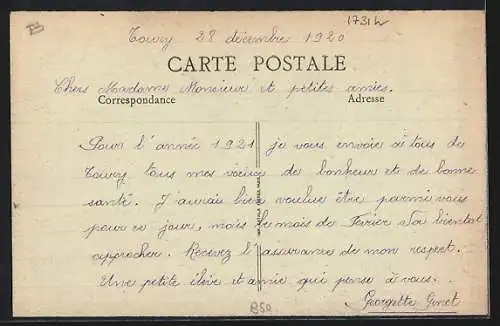 B
1731 L
Toury 28 décembre 1920
CARTE POSTALE
Chers Madame Monsieur et petites amies.
Correspondance Adresse
Pour l'année 1921 je vous envoie à tous de
Toury tous mes voeux de bonheur et de bonne
santé. J'aurais bien voulue être parmi vous
pour ce jour, mais le mois de Février va bientôt
approcher. Recevez l'assurance de mon respect.
Une petite élève et amie qui pense à vous.
Georgette Genet
B50